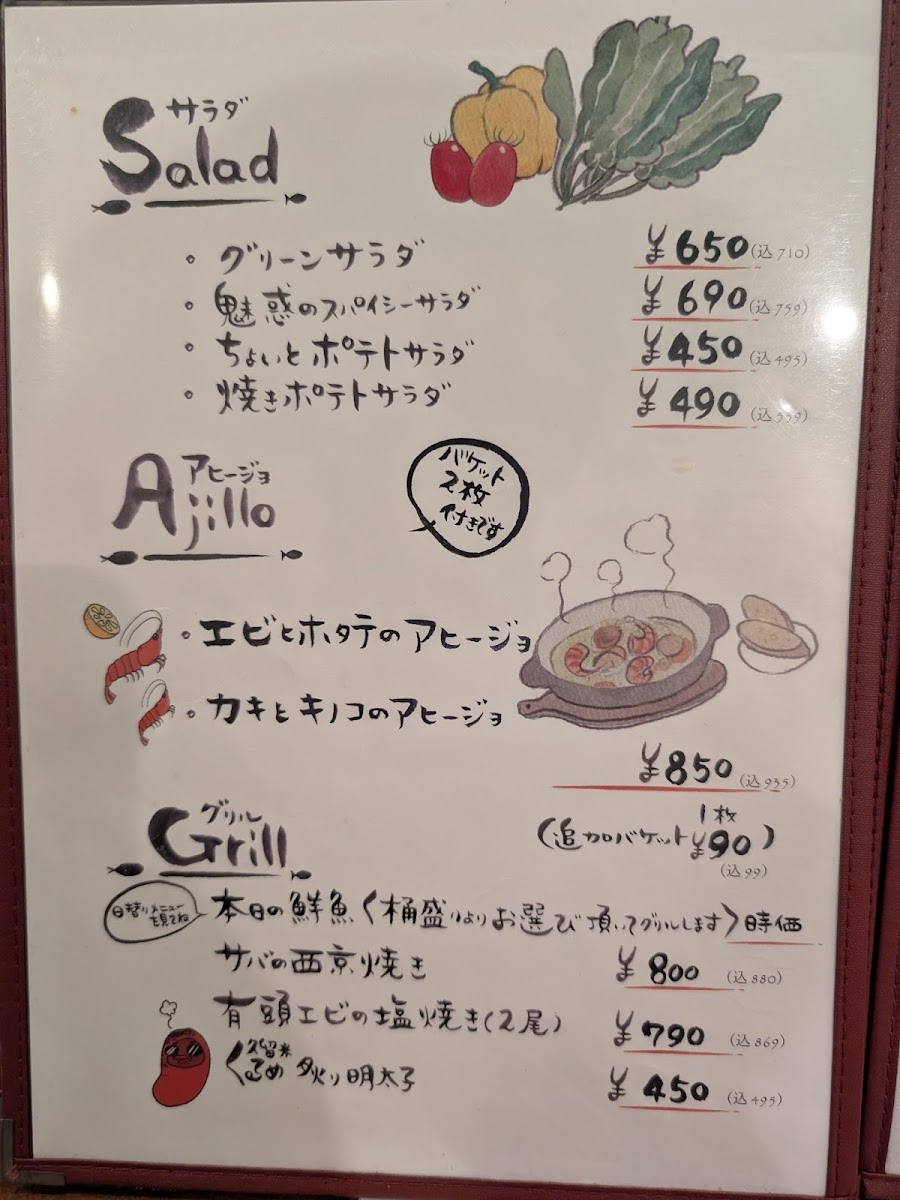 サラダ
Salad
・グリーンサラダ ¥650(込710)
・魅惑のスパイシーサラダ ¥690(込759)
・ちょいとポテトサラダ ¥450(込495)
・焼きポテトサラダ ¥490(込539)
アヒージョ
Ajillo
バケット
2枚
付きです
・エビとホタテのアヒージョ
・カキとキノコのアヒージョ
¥850(込935)
(追加バケット1枚¥90)
(込99)
グリル
Grill
日替りメニュー
を見てね
本日の鮮魚〈桶盛りよりお選び頂いてグリルします〉時価
サバの西京焼き ¥800(込880)
有頭エビの塩焼き(2尾) ¥790(込869)
久留米
くるめ 炙り明太子 ¥450(込495)